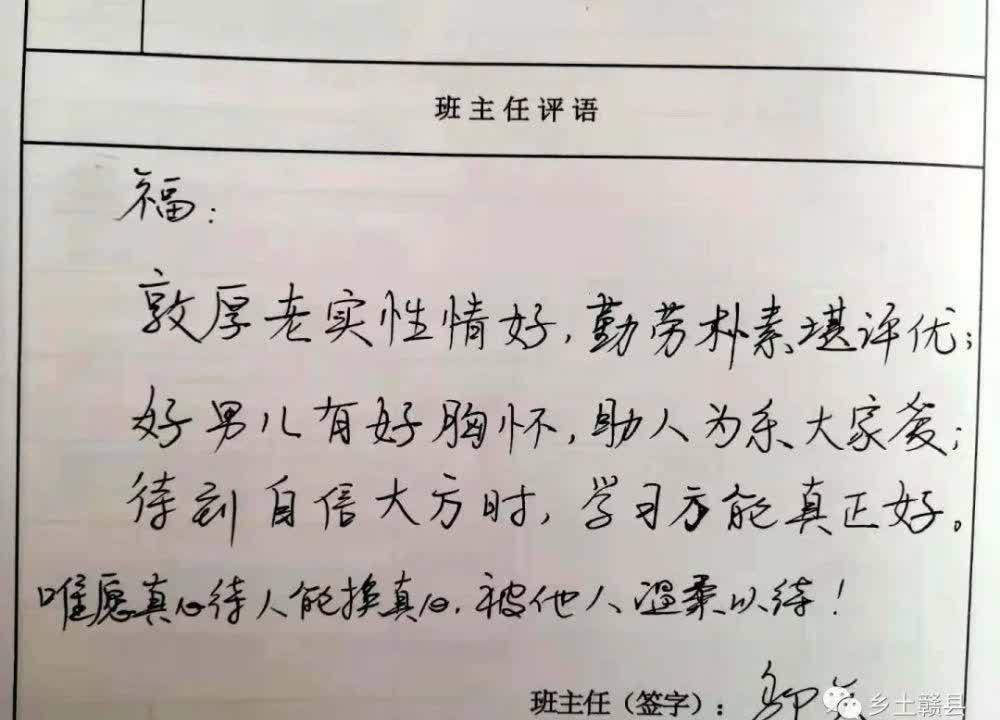 班主任评语
福:
敦厚老实性情好,勤劳朴素堪评优;
好男儿有好胸怀,助人为乐大家爱;
待到自信大方时,学习方能真正好。
唯愿真心待人能换真心,被他人温柔以待!
班主任(签字):
乡土赣县